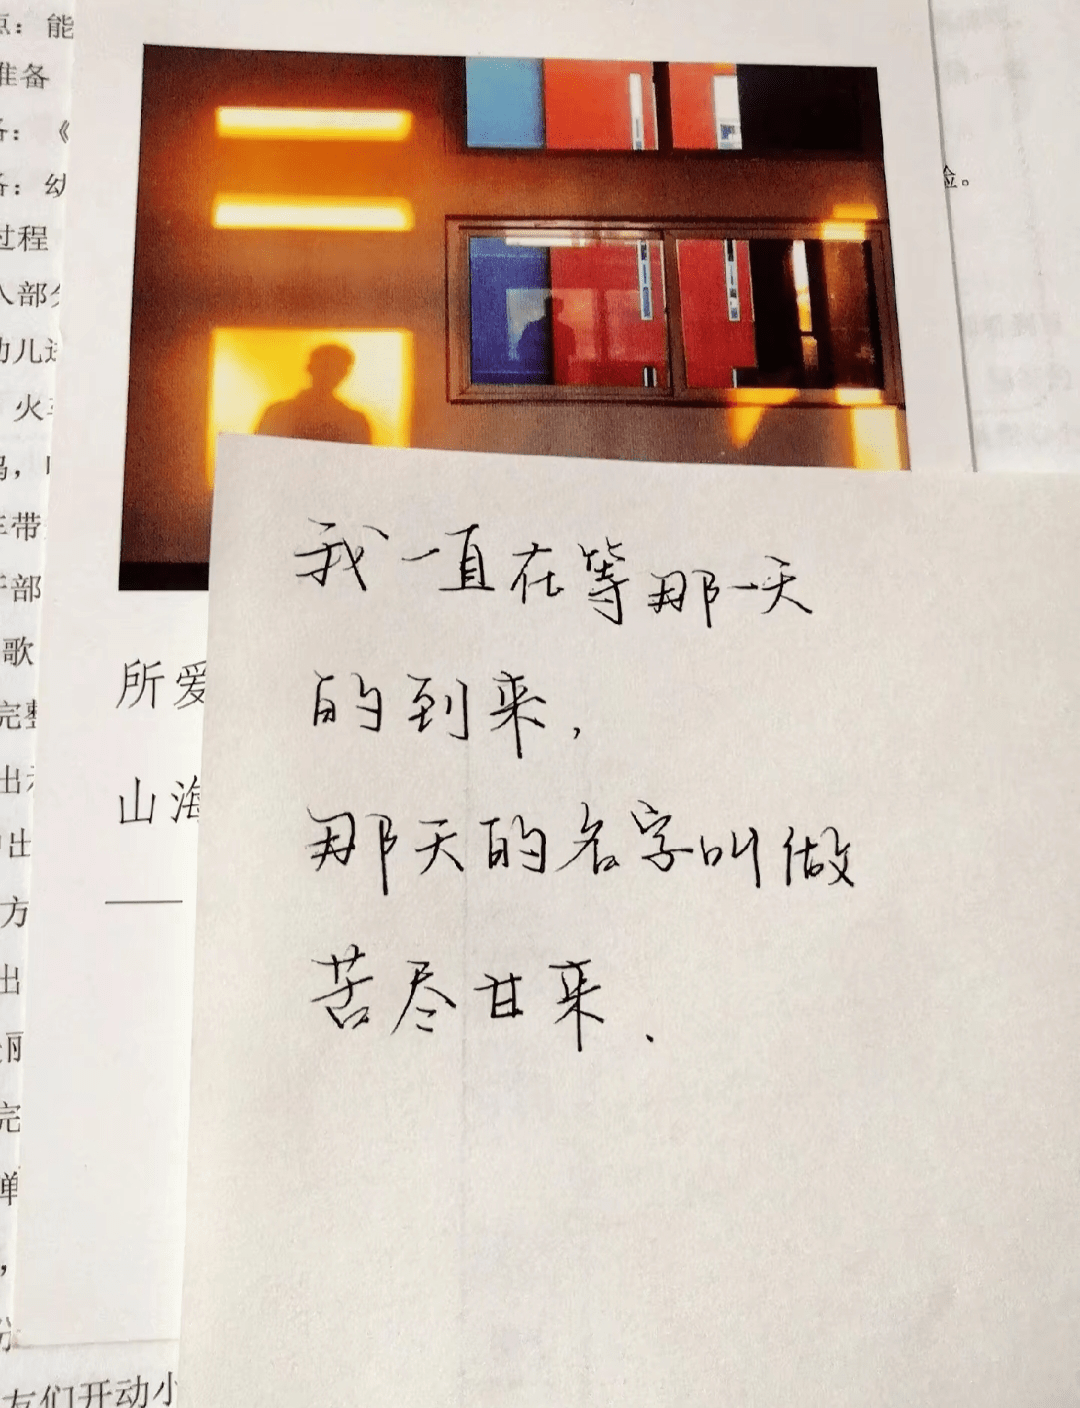 点：能
准备
备：《
备：幼
过程
入部分
幼儿进
火车
鸣，
车带
部
歌
完整
出示
出
方
出
丽
完
单
，
分
友们开动小
验。
所爱
山海
我一直在等那一天
的到来，
那天的名字叫做
苦尽甘来.